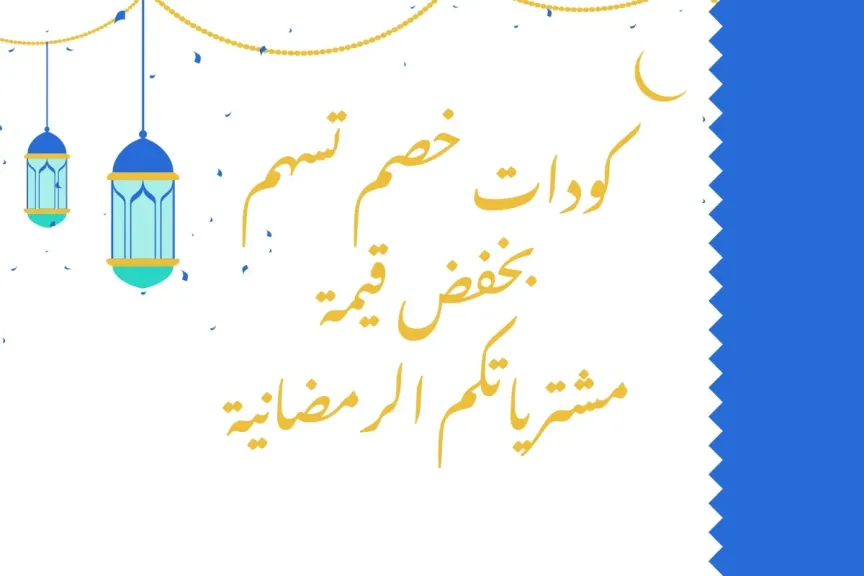 كودات خصم تسهم
بخفض قيمة
مشترياتكم الرمضانية